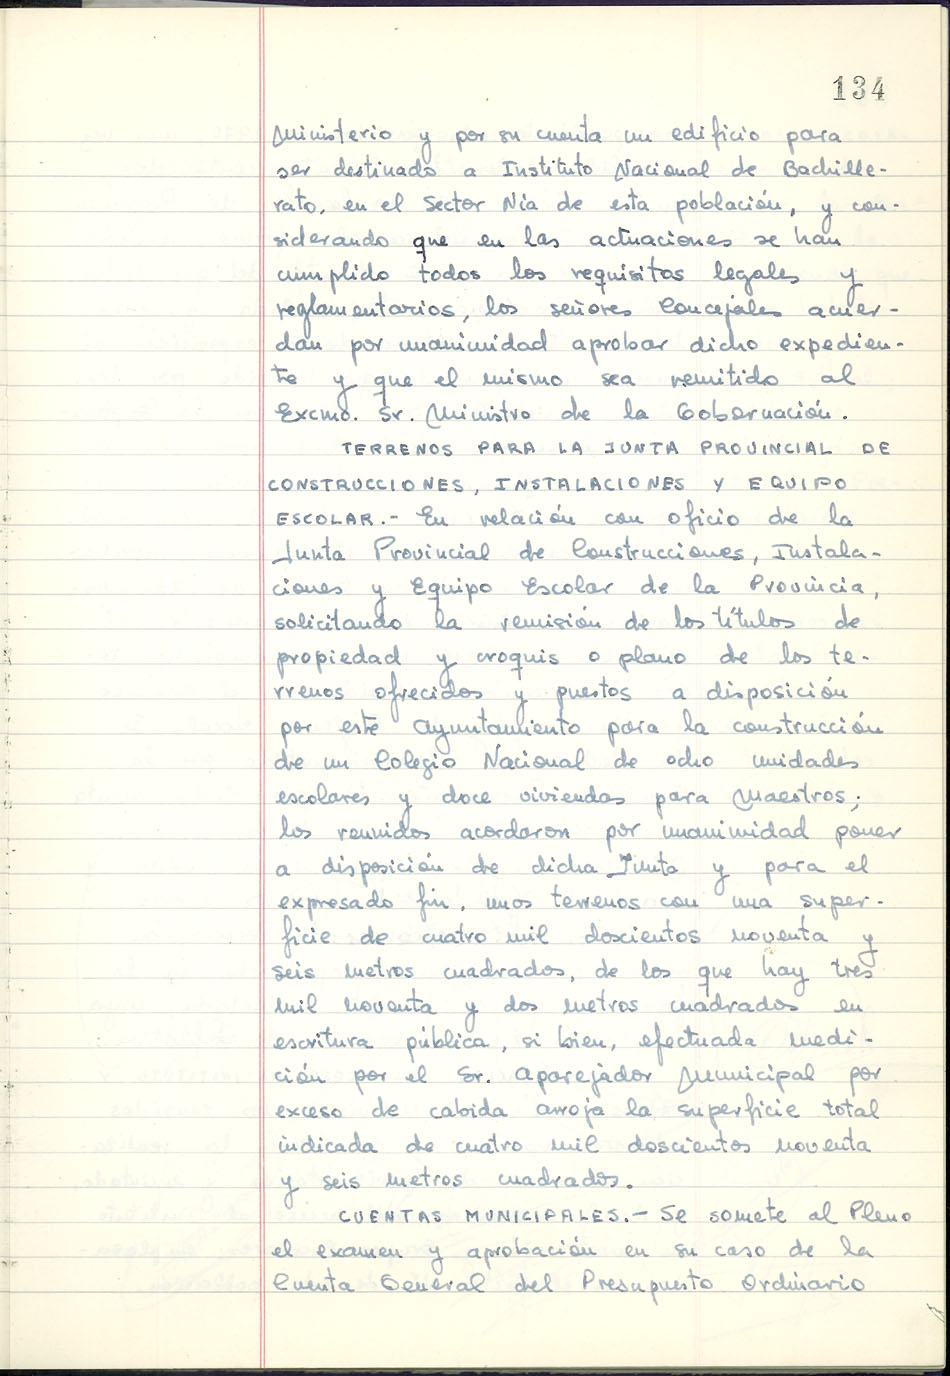 134
Ministerio y por su cuenta un edificio para
ser destinado a Instituto Nacional de Bachille-
rato, en el Sector Nía de esta población, y con-
siderando que en las actuaciones se han
cumplido todos los requisitos legales y
reglamentarios, los señores Concejales acuer-
dan por unanimidad aprobar dicho expedien-
te y que el mismo sea remitido al
Excmo. Sr. Ministro de la Gobernación.
TERRENOS PARA LA JUNTA PROVINCIAL DE
CONSTRUCCIONES, INSTALACIONES Y EQUIPO
ESCOLAR.- En relación con oficio de la
Junta Provincial de Construcciones, Instala-
ciones y Equipo Escolar de la Provincia,
solicitando la remisión de los títulos de
propiedad y croquis o plano de los te-
rrenos ofrecidos y puestos a disposición
por este Ayuntamiento para la construcción
de un Colegio Nacional de ocho unidades
escolares y doce viviendas para Maestros;
los reunidos acordaron por unanimidad poner
a disposición de dicha Junta y para el
expresado fin, unos terrenos con una super-
ficie de cuatro mil doscientos noventa y
seis metros cuadrados, de los que hay tres
mil noventa y dos metros cuadrados en
escritura pública, si bien, efectuada medi-
ción por el Sr. Aparejador Municipal por
exceso de cabida arroja la superficie total
indicada de cuatro mil doscientos noventa
y seis metros cuadrados.
CUENTAS MUNICIPALES.- Se somete al Pleno
el examen y aprobación en su caso de la
Cuenta General del Presupuesto Ordinario